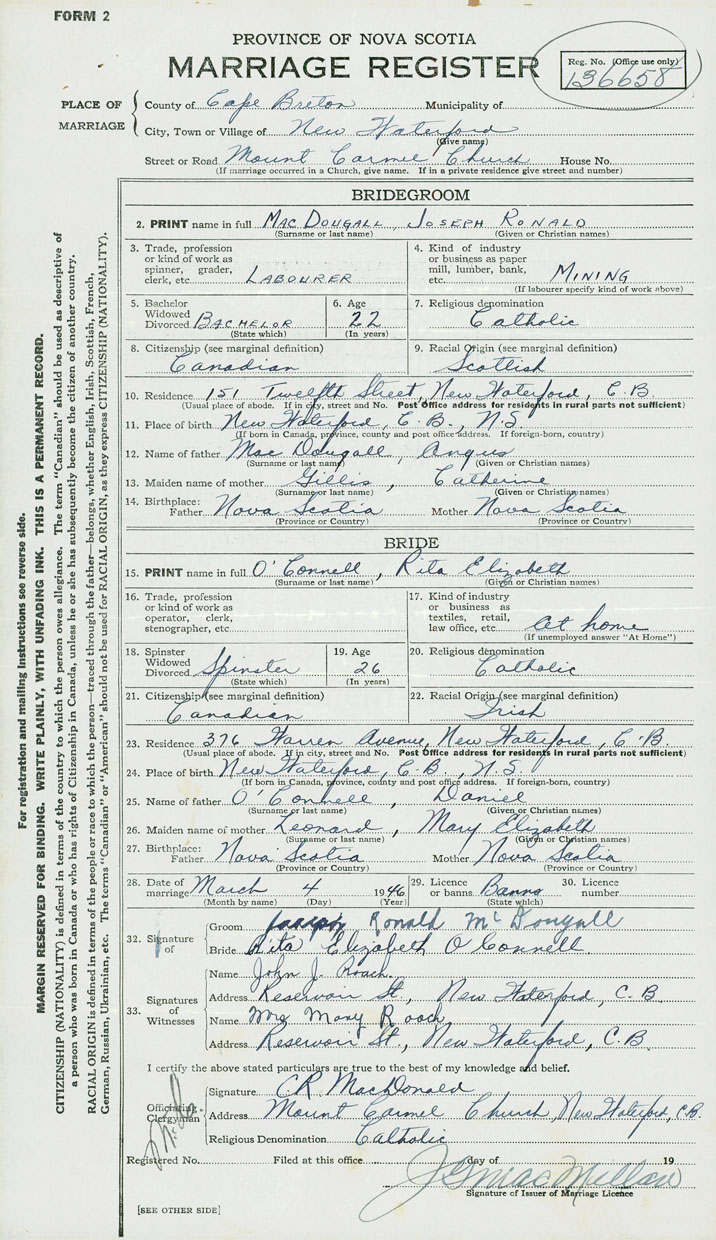 FORM 2
PROVINCE OF NOVA SCOTIA
MARRIAGE REGISTER
Reg. No. (Office use only)
136658
PLACE OF MARRIAGE
County of Cape Breton Municipality of
City, Town or Village of New Waterford
(Give name)
Street or Road Mount Carmel Church House No.
(If marriage occurred in a Church, give name. If in a private residence give street and number)
BRIDEGROOM
2. PRINT name in full MacDougall, Joseph Ronald
(Surname or last name) (Given or Christian names)
3. Trade, profession or kind of work as spinner, grader, clerk, etc. Labourer
4. Kind of industry or business as paper mill, lumber, bank, etc. Mining
(If labourer specify kind of work above)
5. Bachelor Widowed Divorced Bachelor
(State which)
6. Age 22
(In years)
7. Religious denomination
Catholic
8. Citizenship (see marginal definition)
Canadian
9. Racial Origin (see marginal definition)
Scottish
10. Residence 151 Twelfth Street, New Waterford, C.B.
(Usual place of abode. If in city, street and No. Post Office address for residents in rural parts not sufficient)
11. Place of birth New Waterford, C.B., N.S.
(If born in Canada, province, county and post office address. If foreign-born, country)
12. Name of father MacDougall, Angus
(Surname or last name) (Given or Christian names)
13. Maiden name of mother Gillis, Catherine
(Surname or last name) (Given or Christian names)
14. Birthplace: Father Nova Scotia Mother Nova Scotia
(Province or Country) (Province or Country)
BRIDE
15. PRINT name in full O'Connell, Rita Elizabeth
(Surname or last name) (Given or Christian names)
16. Trade, profession or kind of work as operator, clerk, stenographer, etc.
17. Kind of industry or business as textiles, retail, law office, etc. At home
(If unemployed answer "At Home")
18. Spinster Widowed Divorced Spinster
(State which)
19. Age 26
(In years)
20. Religious denomination
Catholic
21. Citizenship (see marginal definition)
Canadian
22. Racial Origin (see marginal definition)
Irish
23. Residence 376 Warren Avenue, New Waterford, C.B.
(Usual place of abode. If in city, street and No. Post Office address for residents in rural parts not sufficient)
24. Place of birth New Waterford, C.B., N.S.
(If born in Canada, province, county and post office address. If foreign-born, country)
25. Name of father O'Connell, Daniel
(Surname or last name) (Given or Christian names)
26. Maiden name of mother Leonard, Mary Elizabeth
(Surname or last name) (Given or Christian names)
27. Birthplace: Father Nova Scotia Mother Nova Scotia
(Province or Country) (Province or Country)
28. Date of marriage March 4 1946
(Month by name) (Day) (Year)
29. Licence or banns Banns
(State which)
30. Licence number
32. Signature of
Groom Joseph Ronald McDougall
Bride Rita Elizabeth O Connell.
33. Signatures of Witnesses
Name John J. Roach.
Address Reservoir St., New Waterford, C.B.
Name Mrs Mary Roach
Address Reservoir St., New Waterford, C.B.
I certify the above stated particulars are true to the best of my knowledge and belief.
Officiating Clergyman
Signature C.R. MacDonald
Address Mount Carmel Church, New Waterford, C.B.
Religious Denomination Catholic
Registered No. Filed at this office day of 19
J G MacMillan
Signature of Issuer of Marriage Licence
[SEE OTHER SIDE]
For registration and mailing instructions see reverse side.
MARGIN RESERVED FOR BINDING. WRITE PLAINLY, WITH UNFADING INK. THIS IS A PERMANENT RECORD.
CITIZENSHIP (NATIONALITY) is defined in terms of the country to which the person owes allegiance. The term "Canadian" should be used as descriptive of
a person who was born in Canada or who has rights of Citizenship in Canada, unless he or she has subsequently become the citizen of another country.
RACIAL ORIGIN is defined in terms of the people or race to which the person—traced through the father—belongs, whether English, Irish, Scottish, French,
German, Russian, Ukrainian, etc. The terms "Canadian" or "American" should not be used for RACIAL ORIGIN, as they express CITIZENSHIP (NATIONALITY).